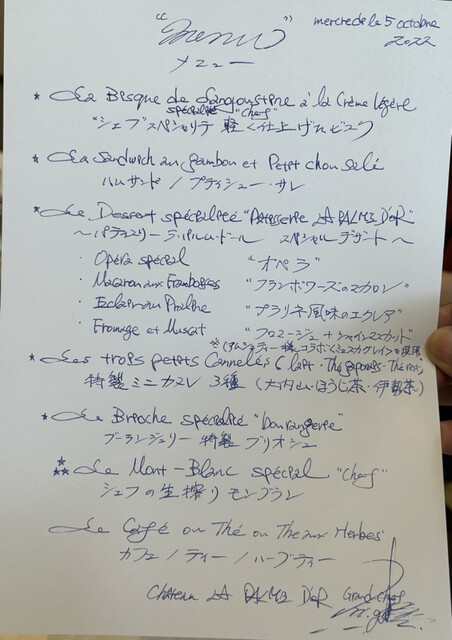 "Menu"
mercredi le 5 octobre
2022
メニュー
* La Bisque de Langoustine à la Crème légère
spécialité "Chef"
"シェフ"スペシャリテ 軽く仕上げたビスク
* La Sandwich au Jambon et Petit chou salé
ハムサンド / プティシュー・サレ
* Le Dessert spécialité "Patisserie LA PALME D'OR"
〜パティスリー ラ・パルム・ドール スペシャルデザート〜
・ Opéra spécial "オペラ"
・ Macaron aux Framboises "フランボワーズのマカロン"
・ Eclair au Praline "プラリネ風味のエクレア"
・ Fromage et Muscat "フロマージュ + シャインマスカット"
* Les trois petits Cannelés
特製 ミニカヌレ 3種 (大内山・ほうじ茶・伊勢茶)
* Le Brioche spécialité "Boulangerie"
ブーランジュリー 特製 ブリオシュ
*** Le Mont-Blanc spécial "Chef"
シェフの生搾りモンブラン
Le Café ou Thé ou Thé aux Herbes
カフェ / ティー / ハーブティー
Chateau LA PALME D'OR Grand Chef